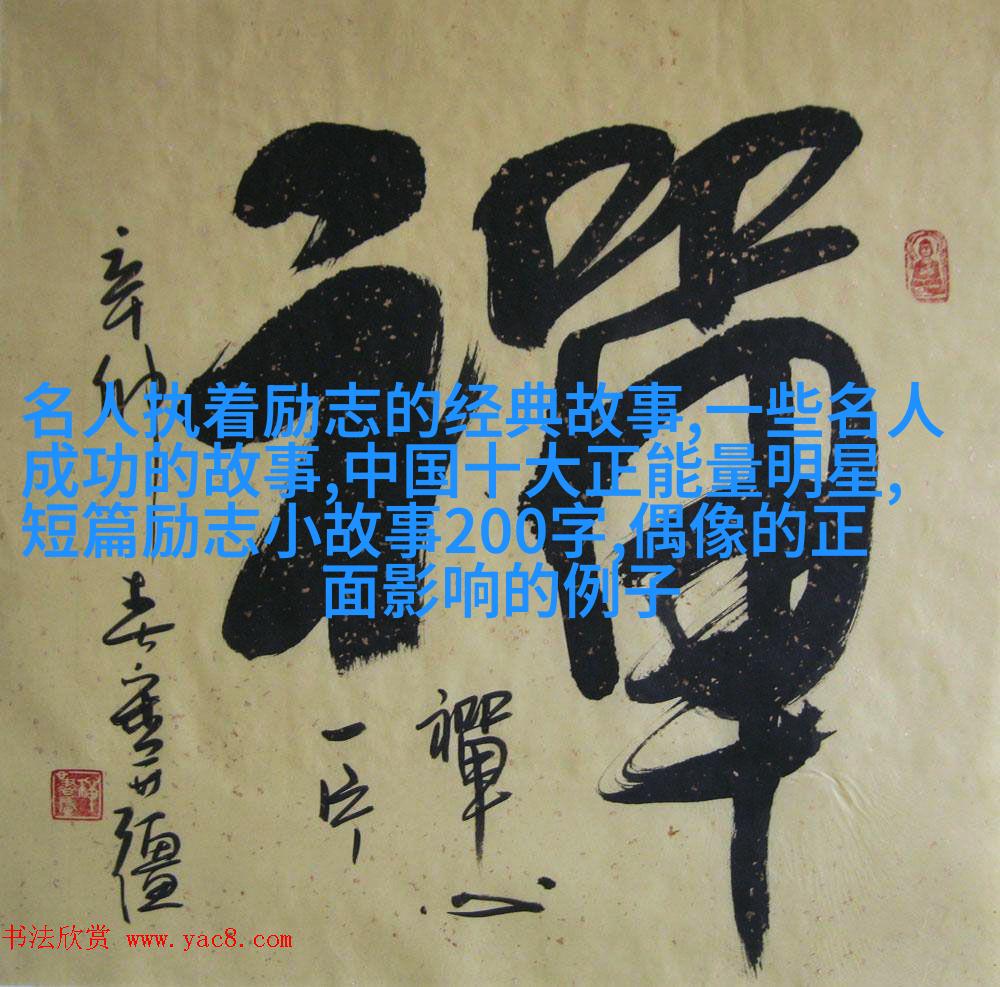 禪
禪心
一片
名人执着励志的经典故事,一些名人
成功的故事,中国十大正能量明星,
短篇励志小故事200字,偶像的正
面影响的例子
书法欣赏 www.yac8.com